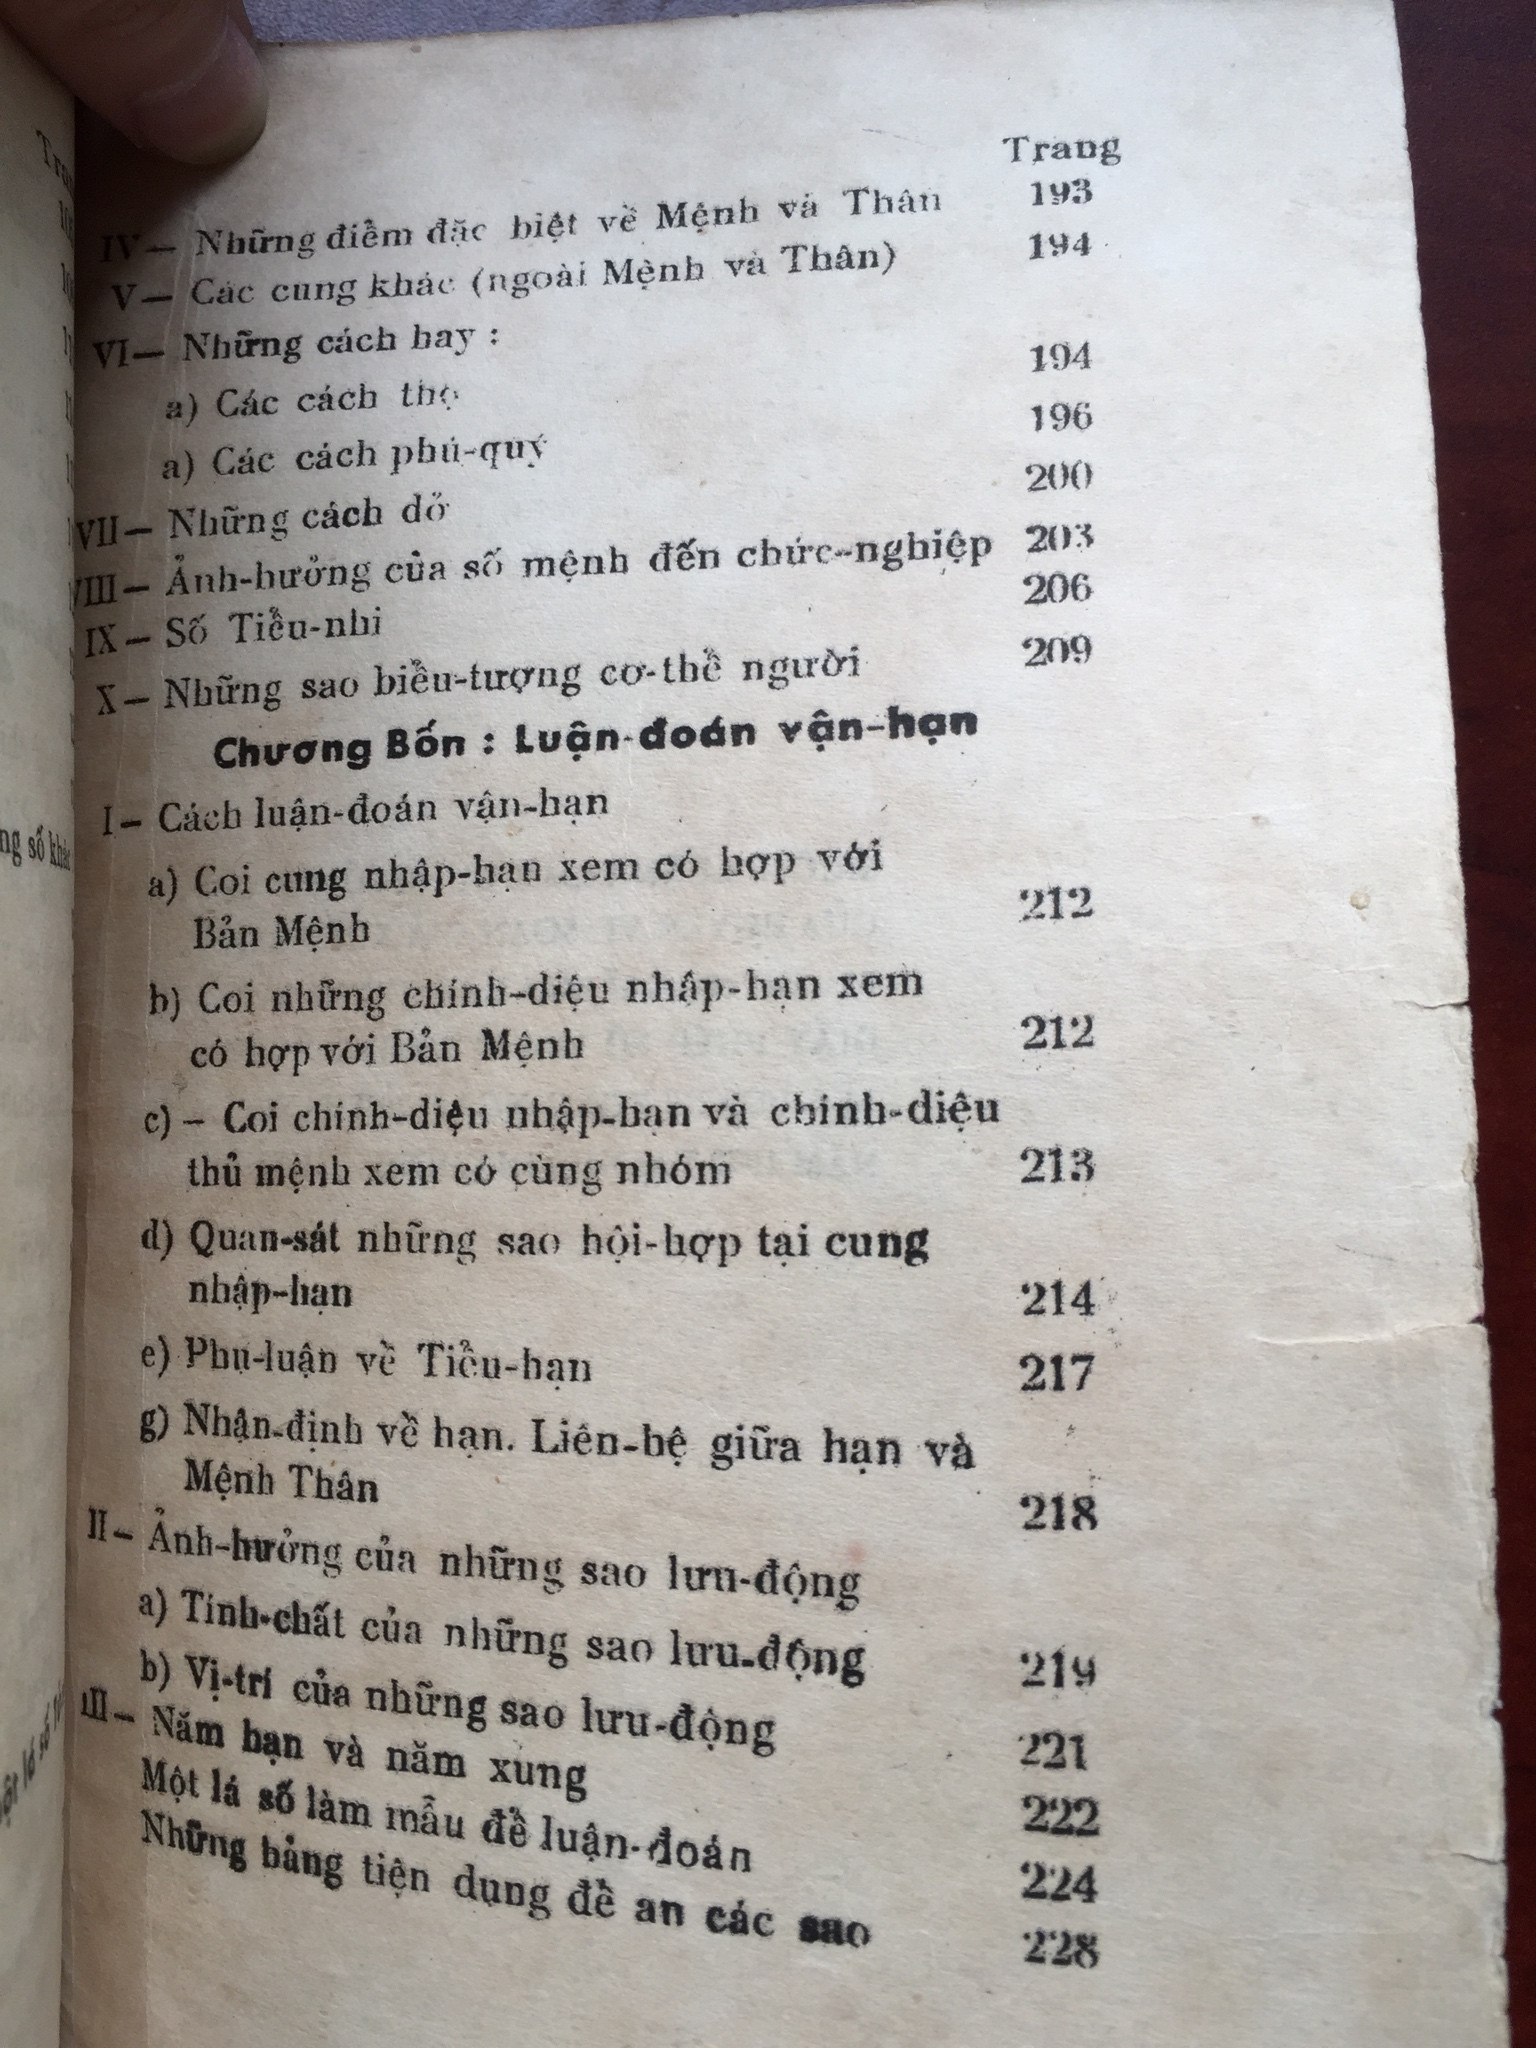 Trang
IV— Những điểm đặc biệt về Mệnh và Thân 193
V— Các cung khác (ngoài Mệnh và Thân) 194
VI— Những cách hay :
a) Các cách thọ 194
a) Các cách phú-quý 196
VII— Những cách dở 200
VIII— Ảnh-hưởng của số mệnh đến chức-nghiệp 203
IX— Số Tiểu-nhi 206
X— Những sao biểu-tượng cơ-thể người 209
Chương Bốn : Luận-đoán vận-hạn
I— Cách luận-đoán vận-hạn
a) Coi cung nhập-hạn xem có hợp với
Bản Mệnh 212
b) Coi những chính-diệu nhập-hạn xem
có hợp với Bản Mệnh 212
c) – Coi chính-diệu nhập-hạn và chính-diệu
thủ mệnh xem có cùng nhóm 213
d) Quan-sát những sao hội-hợp tại cung
nhập-hạn 214
e) Phụ-luận về Tiểu-hạn 217
g) Nhận-định về hạn. Liên-hệ giữa hạn và
Mệnh Thân 218
II— Ảnh-hưởng của những sao lưu-động
a) Tính-chất của những sao lưu-động 219
b) Vị-trí của những sao lưu-động 221
III— Năm hạn và năm xung 222
Một lá số làm mẫu để luận-đoán 224
Những bảng tiện dụng để an các sao 228
số khác
lá số